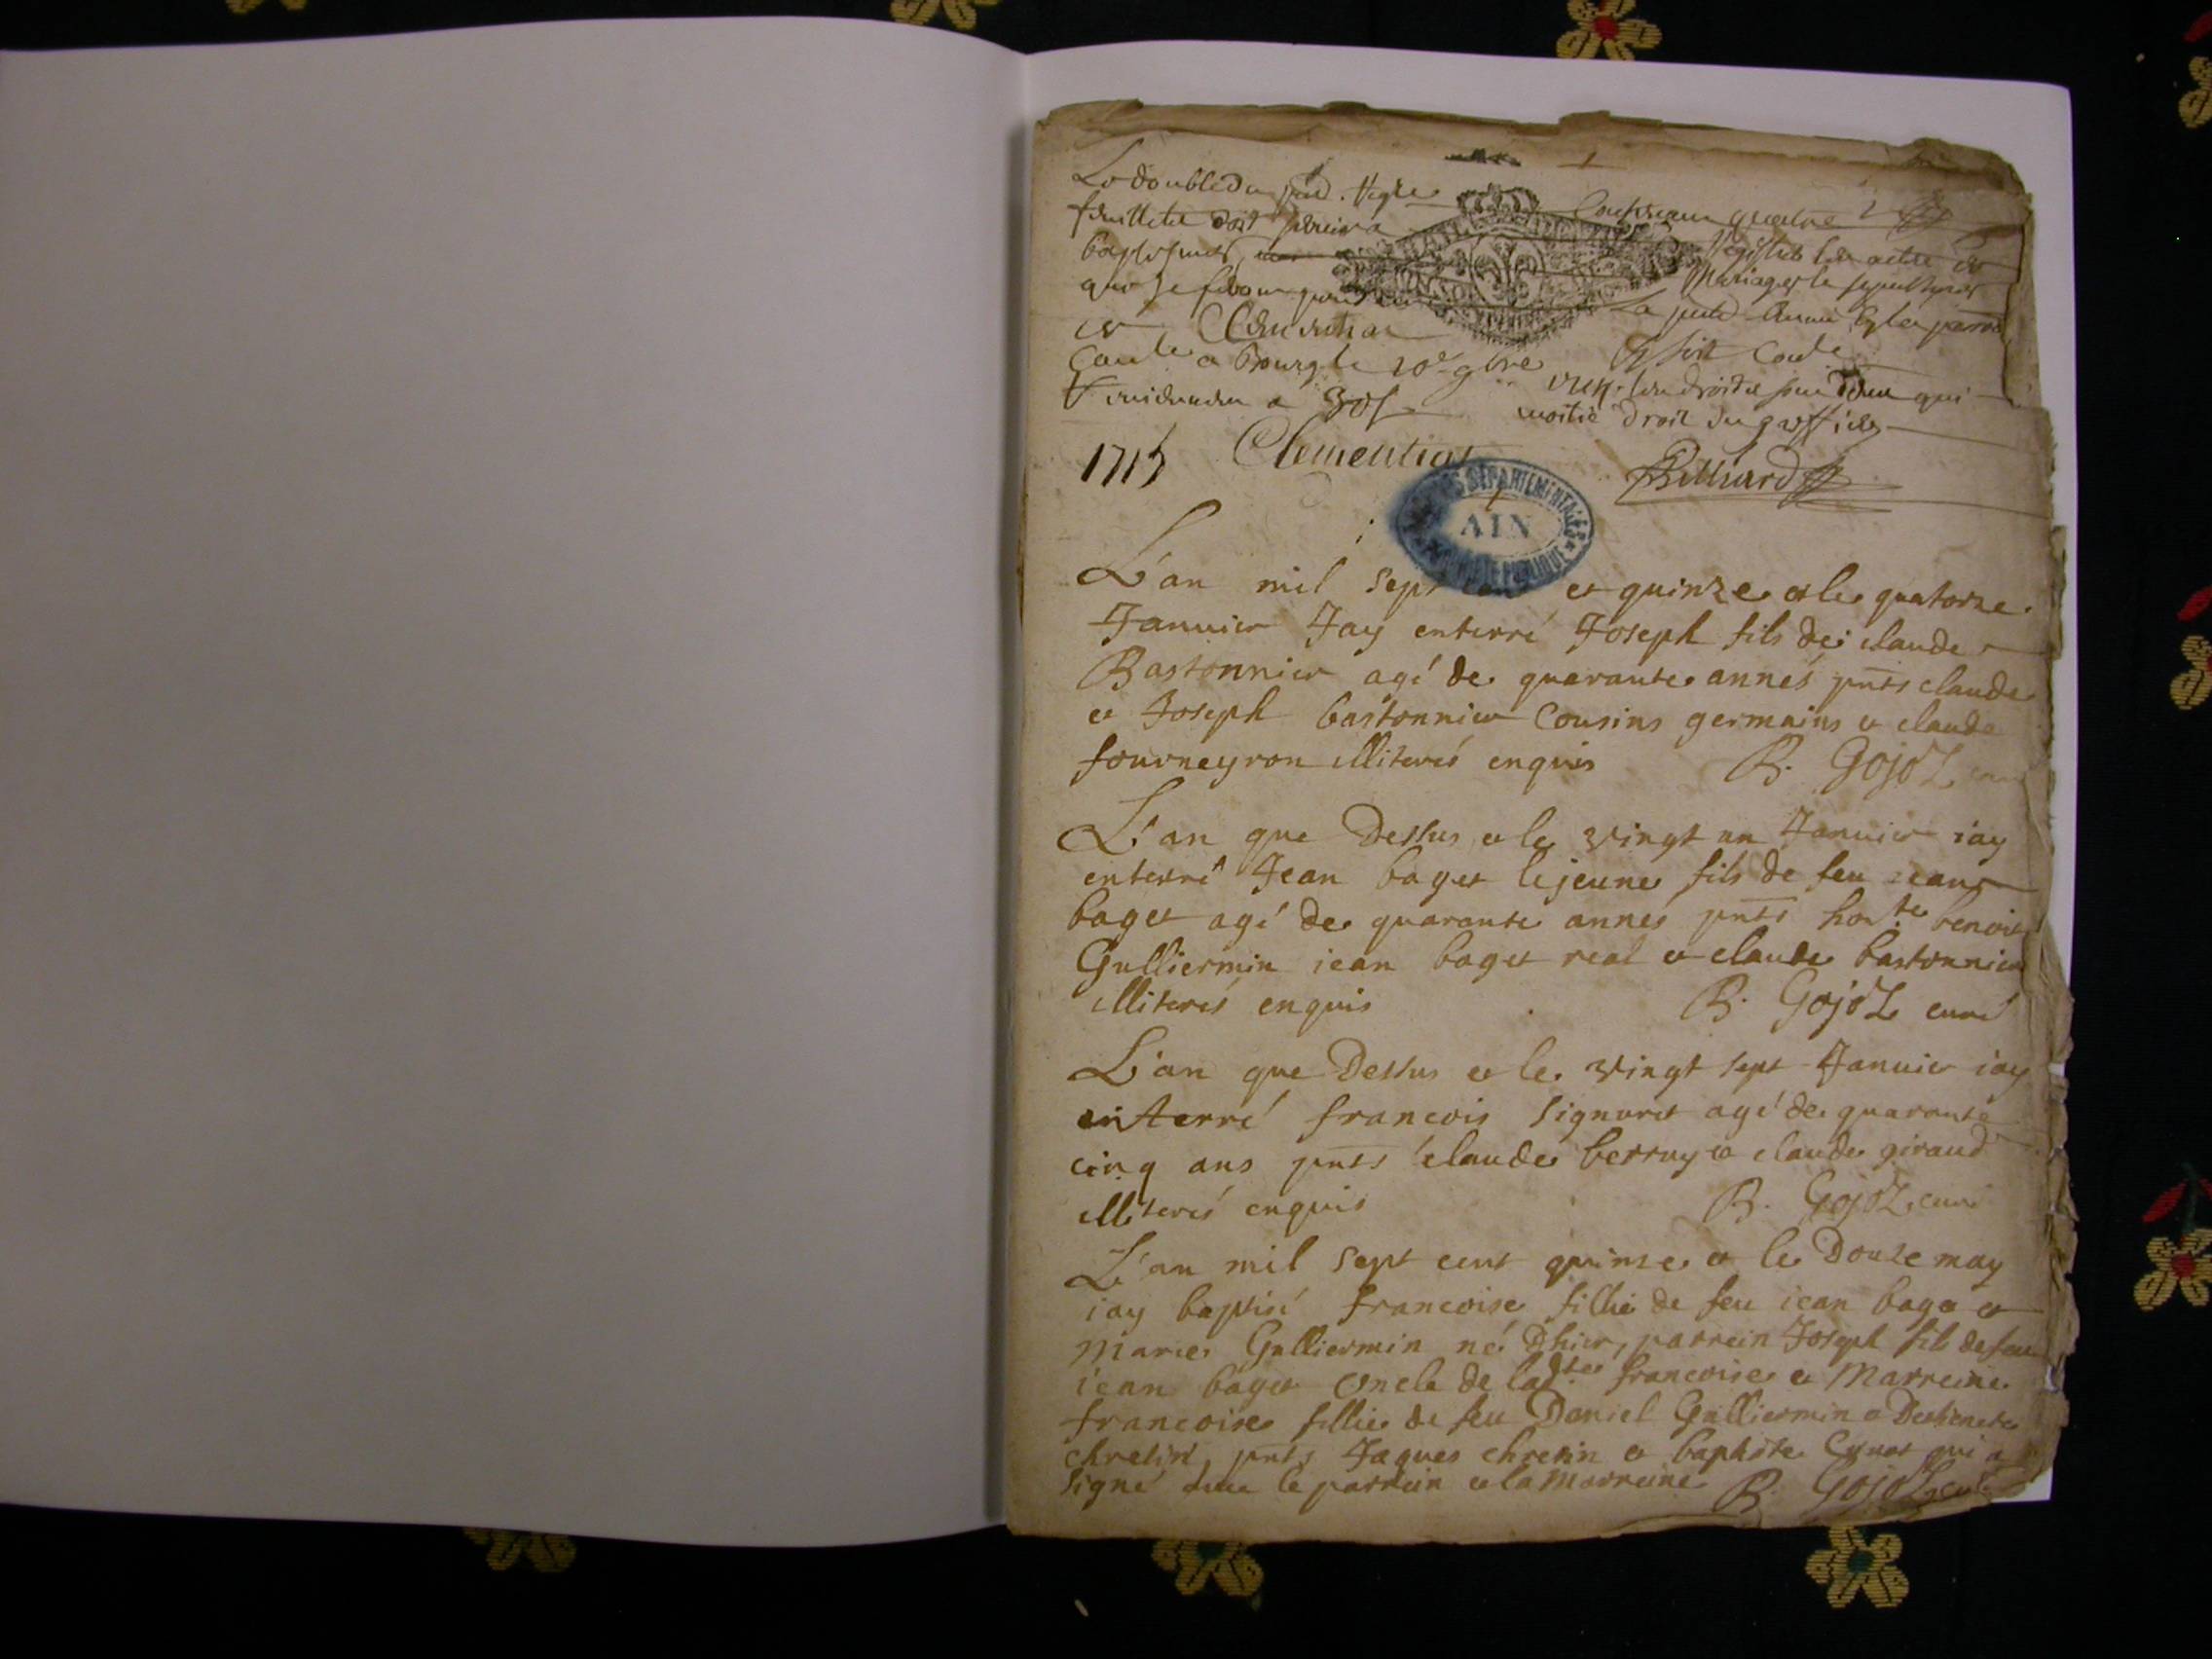 Le double du pnt. Regre Contenant quatre
feuillets doit servir a Registrer les actes de
baptesmes, Mariages le sepultures
que se feront pendant La pnte Année En la parroi
de Clementia
Cotté a bourg le 10e 9bre
a 30s moitié droit du greffier
1715 Clementiat Billiard
ARCHIVES DÉPARTEMENTALES
AIN
L'an mil sept cent et quinze et le quatorze
Januier Jay enterré Joseph fils de claude
Bastonnier agé de quarante annés pnts claude
et Joseph bastonnier Cousins germains et claude
fourneyron illiterés enquis B. Gojoz curé
L'an que Dessus et le vingt un Januier iay
enterré Jean baget le jeune fils de feu iean
baget agé de quarante annés pnts hon.te benoit
Gulliermin iean baget real et claude bastonnier
illiterés enquis B. Gojoz curé
L'an que Dessus et le vingt sept Januier iay
enterré francois Signoret agé de quarante
cinq ans pnts claude berruy et claude giraud
illiterés enquis B. Gojoz curé
L'an mil sept cent quinze et le Douze may
iay baptisé francoise fillie de feu iean baget et
Marie Gulliermin né Dhier, parrein Joseph fils de feu
iean baget oncle de ladte francoise et Marreine
francoise fillie de feu Daniel Gulliermin et
chretin, pnts Jaques chretin et baphiste Cynot qui a
signé auec le parrein et la Marreine B. Gojoz curé